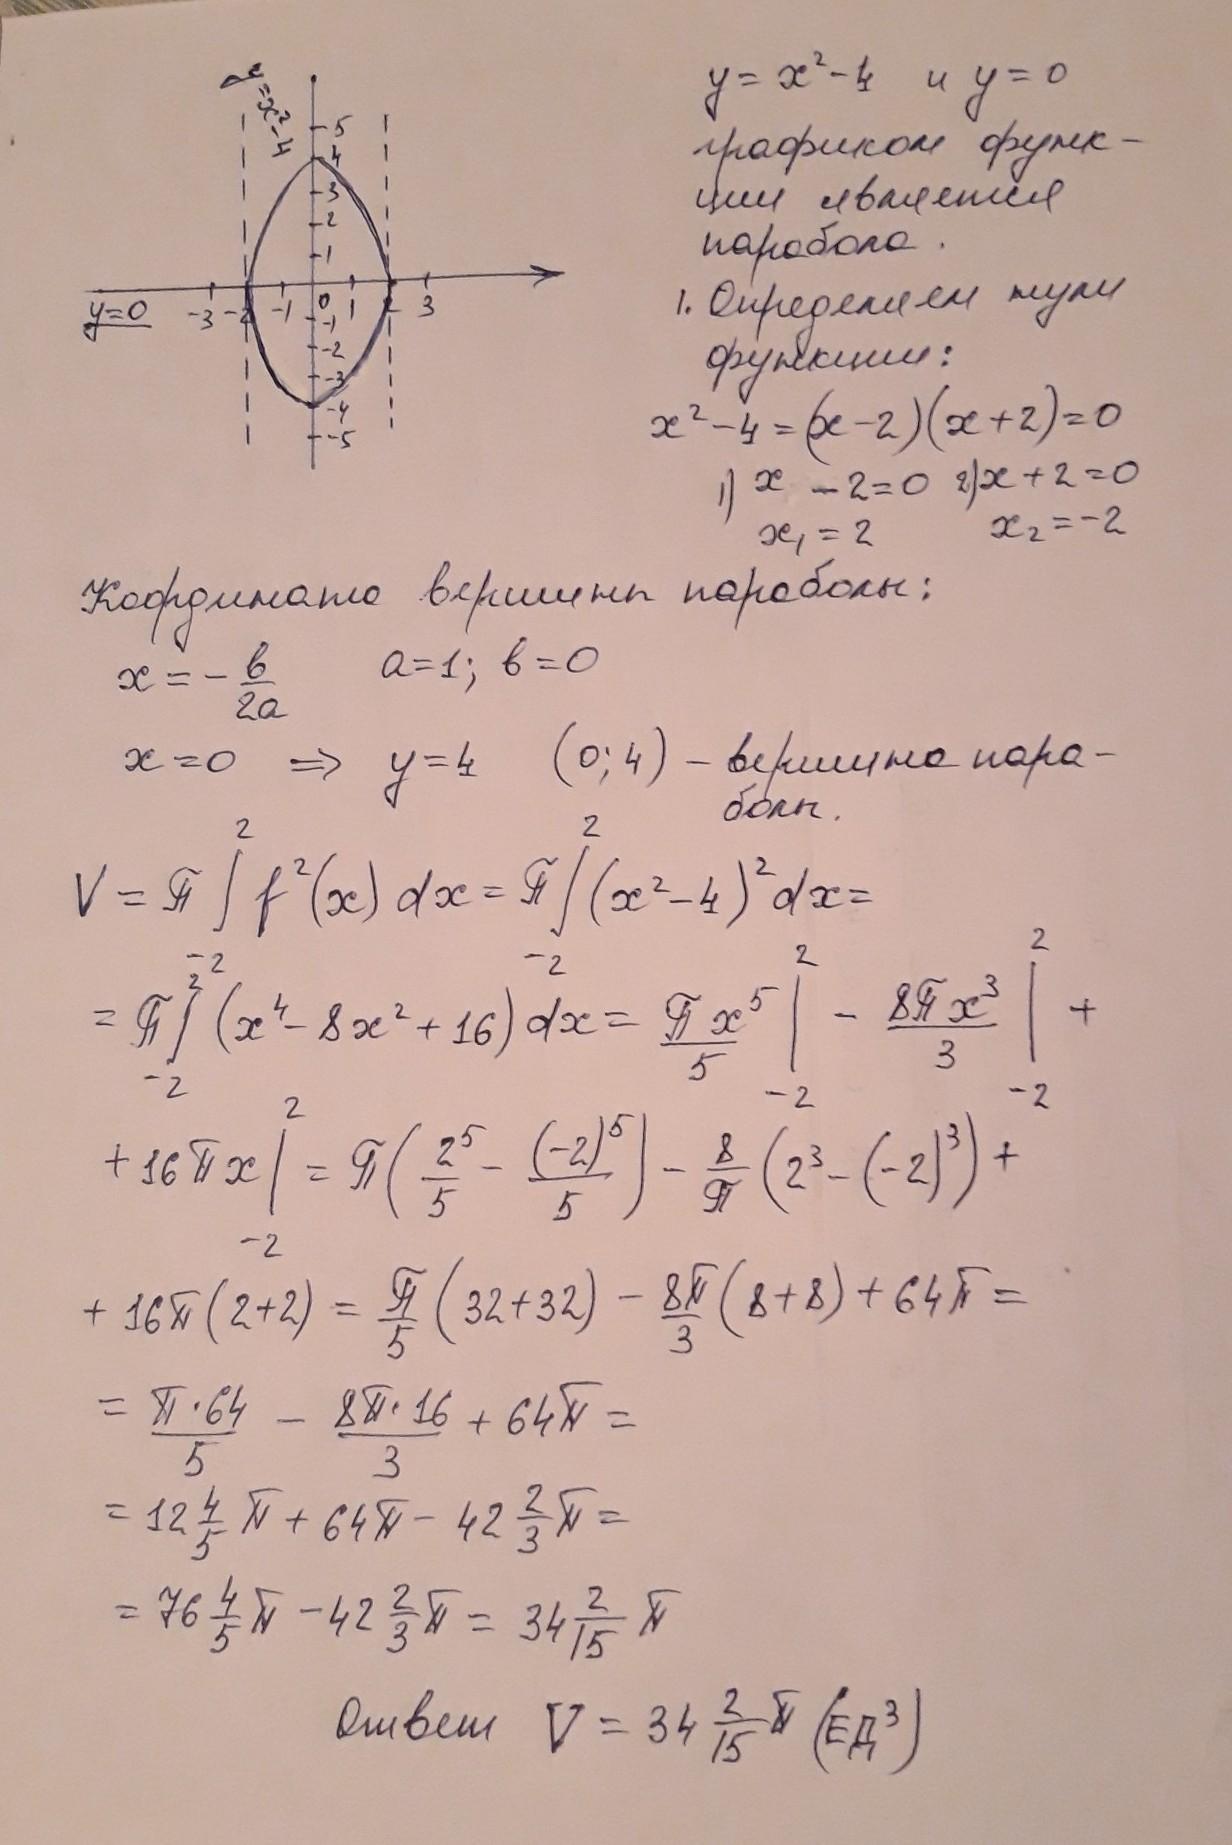 y = x² - 4
5
4
3
2
1
y=0 -3 -2 -1 0 1 2 3
-1
-2
-3
-4
-5
y = x² - 4 и y = 0
графиком функ-
ции является
парабола.
1. Определяем нули
функции:
x² - 4 = (x - 2)(x + 2) = 0
1) x - 2 = 0 2) x + 2 = 0
x₁ = 2 x₂ = -2
Координата вершины параболы:
x = -b/2a a = 1; b = 0
x = 0 ⇒ y = 4 (0; 4) - вершина пара-
болы.
V = π ∫₋₂² f²(x) dx = π ∫₋₂² (x² - 4)² dx =
= π ∫₋₂² (x⁴ - 8x² + 16) dx = πx⁵/5 |₋₂² - 8πx³/3 |₋₂² +
+ 16πx |₋₂² = π(2⁵/5 - (-2)⁵/5) - 8/π (2³ - (-2)³) +
+ 16π(2+2) = π/5 (32+32) - 8π/3 (8+8) + 64π =
= π·64/5 - 8π·16/3 + 64π =
= 12 4/5 π + 64π - 42 2/3 π =
= 76 4/5 π - 42 2/3 π = 34 2/15 π
Ответ V = 34 2/15 π (ЕД³)